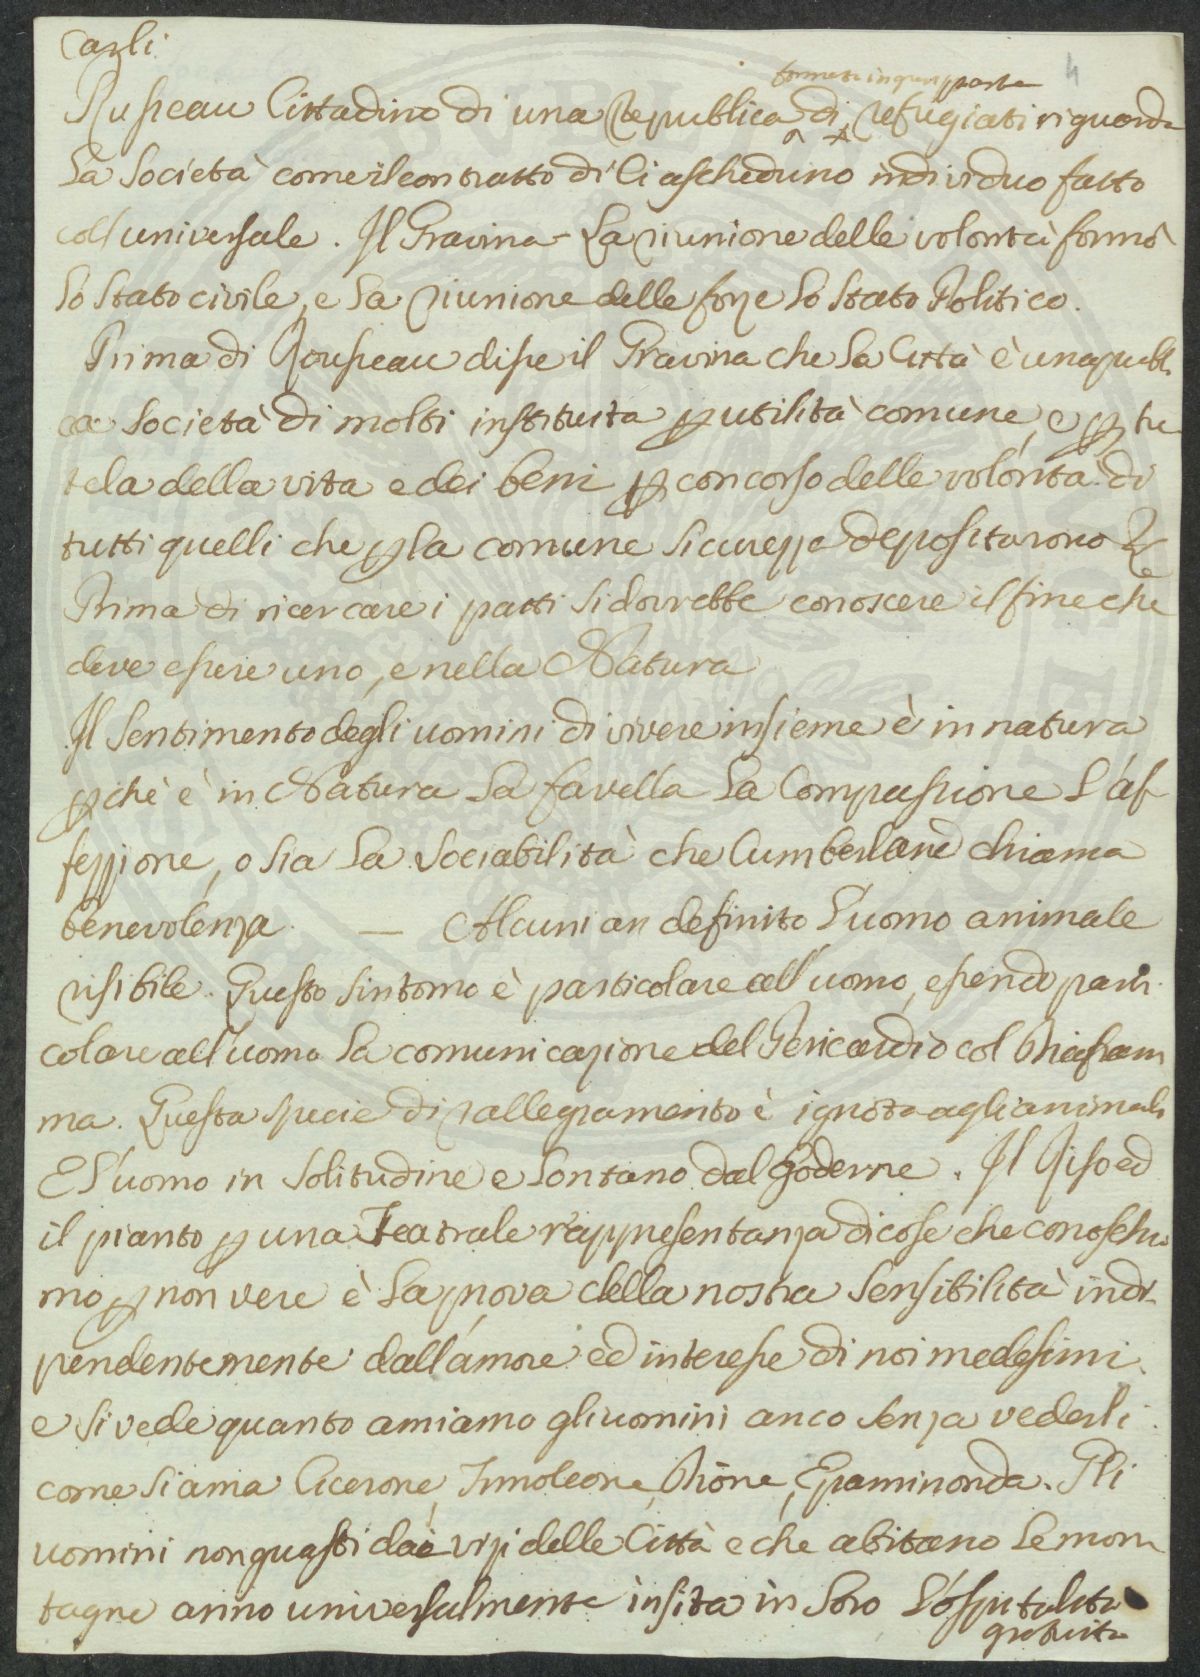 Carli.
formata in gran parte 4
Russeau Cittadino di una Republica di refugiati riguarda
la Società come il contratto di Ciascheduno individuo fatto
coll'universale. Il Gravina - La riunione delle volontà formò
lo stato civile, e la riunione delle forze lo stato Politico.
Prima di Rousseau disse il Gravina che la Città è una publi
ca Società di molti instituita p utilità comune, e p tu
tela della vita e dei beni p concorso delle volontà di
tutti quelli che p la comune sicurezza depositarono &c
Prima di ricercare i patti si dovrebbe conoscere il fine che
deve essere uno, e nella Natura
Il Sentimento degli uomini di vivere insieme è in natura
pchè è in Natura la favella la Compassione l'af-
fezzione, o sia la Sociabilità che Cumberland chiama
benevolenza. — Alcuni an definito l'uomo animale
risibile. Questo sintomo è particolare all'uomo, essendo parti
colare all'uomo la comunicazione del Pericardio col Diafram
ma. Questa specie di rallegramento è ignota agli animali
E l'uomo in solitudine e lontano dal goderne. Il Riso ed
il pianto p una Teatrale rappresentanza di cose che conoschia
mo p non vere è la prova della nostra sensibilità indi-
pendentemente dall'amore ed interesse di noi medesimi
e si vede quanto amiamo gli uomini anco senza vederli
come si ama Cicerone, Timoleone, Dione, Epaminonda. Gli
uomini non guasti dai vizi delle Città e che abitano le mon
tagne anno universalmente insita in loro l'ospitalità
gratuita